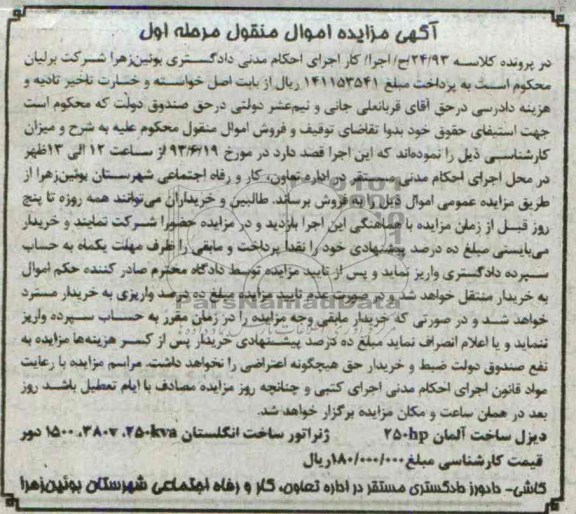 آگهی مزایده اموال منقول مرحله اول
در پرونده کلاسه ۲۴/۹۳/ح/ اجرا/ کار اجرای احکام مدنی دادگستری بوئین‌زهرا شرکت برلیان
محکوم است به پرداخت مبلغ ۱۴۱۱۵۳۵۴۱ ریال از بابت اصل خواسته و خسارت تاخیر تادیه و
هزینه دادرسی درحق آقای قربانعلی جانی و نیم‌عشر دولتی درحق صندوق دولت که محکوم است
جهت استیفای حقوق خود بدوا تقاضای توقیف و فروش اموال منقول محکوم علیه به شرح و میزان
کارشناسی ذیل را نموده‌اند که این اجرا قصد دارد در مورخ ۹۳/۶/۱۹ از ساعت ۱۲ الی ۱۳ظهر
در محل اجرای احکام مدنی مستقر در اداره تعاون، کار و رفاه اجتماعی شهرستان بوئین‌زهرا از
طریق مزایده عمومی اموال ذیل را به فروش برساند. طالبین و خریداران می‌توانند همه روزه تا پنج
روز قبل از زمان مزایده با هماهنگی این اجرا بازدید و در مزایده حضورا شرکت نمایند و خریدار
می‌بایستی مبلغ ده درصد پیشنهادی خود را نقدا پرداخت و مابقی را ظرف مهلت یکماه به حساب
سپرده دادگستری واریز نماید و پس از تایید مزایده توسط دادگاه محترم صادر کننده حکم اموال
به خریدار منتقل خواهد شد و در صورت عدم تایید مزایده مبلغ ده درصد واریزی به خریدار مسترد
خواهد شد و در صورتی که خریدار مابقی وجه مزایده را در زمان مقرر به حساب سپرده واریز
ننماید و یا اعلام انصراف نماید مبلغ ده درصد پیشنهادی خریدار پس از کسر هزینه‌ها مزایده به
نفع صندوق دولت ضبط و خریدار حق هیچگونه اعتراضی را نخواهد داشت. مراسم مزایده با رعایت
مواد قانون اجرای احکام مدنی اجرای کتبی و چنانچه روز مزایده مصادف با ایام تعطیل باشد روز
بعد در همان ساعت و مکان مزایده برگزار خواهد شد.
دیزل ساخت آلمان ۲۵۰hp ژنراتور ساخت انگلستان ۲۵۰kva، ۳۸۰v، ۱۵۰۰ دور
قیمت کارشناسی مبلغ ۱۸۰/۰۰۰/۰۰۰ریال
کاشی- دادورز دادگستری مستقر در اداره تعاون، کار و رفاه اجتماعی شهرستان بوئین‌زهرا
ParsNamadData